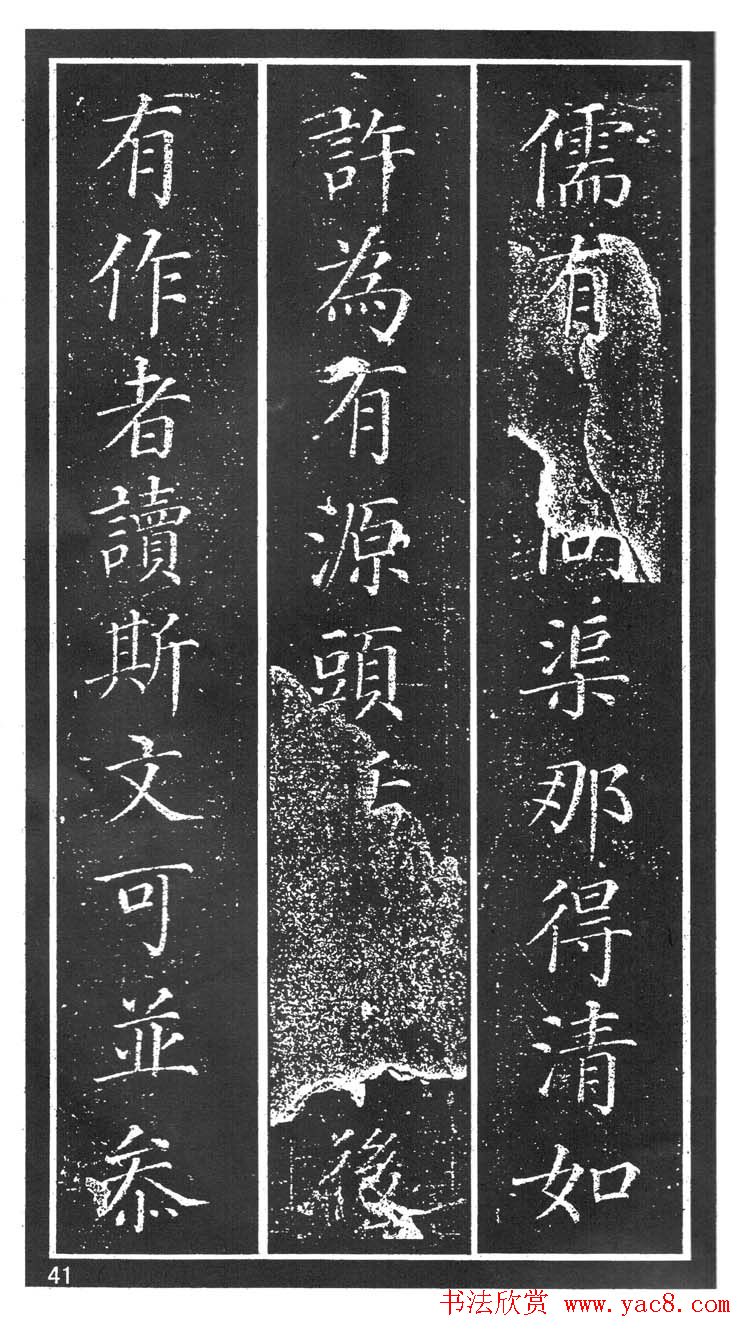 儒有問渠那得清如
許為有源頭後
有作者讀斯文可並叅
41
书法欣赏 www.yac8.com